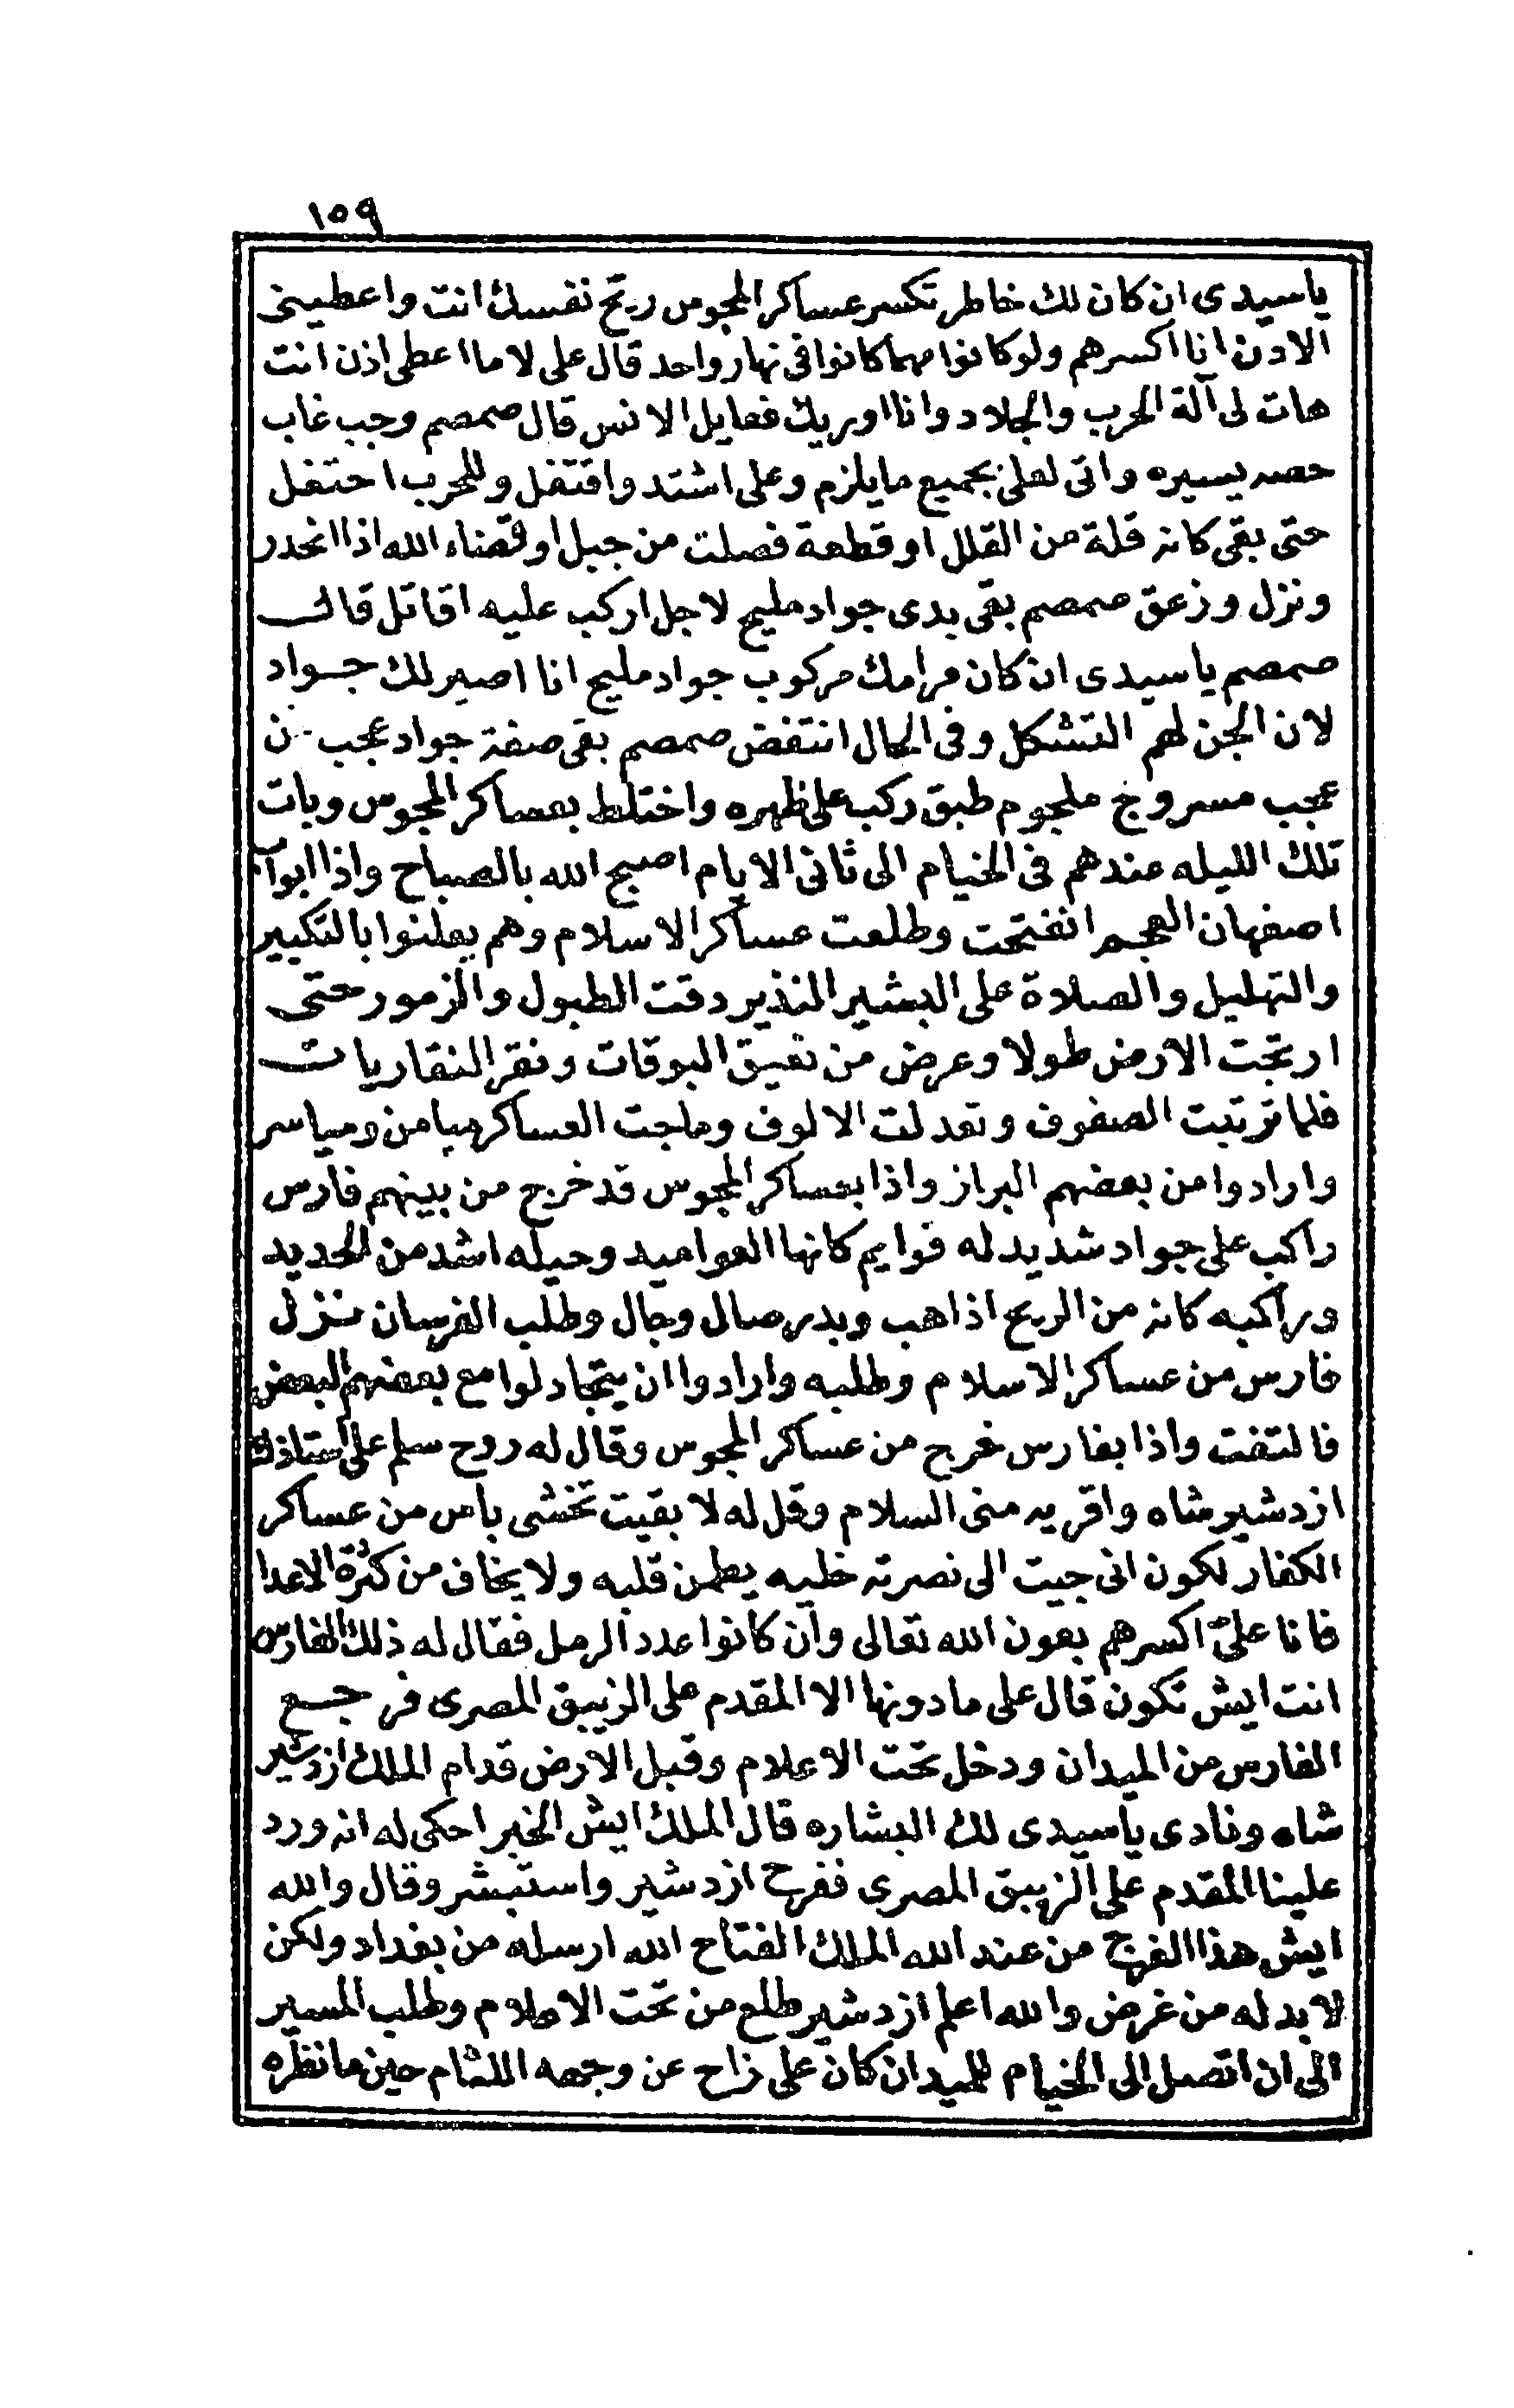 ١٥٩
ياسيدى ان كان لك خاطر تكسر عساكر المجوس ريح نفسك انت واعطينى
الادن انا اكسرهم ولو كانوا مهما كانوا فى نهار واحد قال على لا ما اعطى اذن انت
هات لى آلة الحرب والجلاد وانا اوريك فعايل الانس قال صمصم وجب غاب
حصه يسيره واتى لعلى بجميع ما يلزم وعلى اشتد واقتفل وللحرب احتفل
حتى بقى كانه قلة من القلل او قطعة فصلت من جبل او قضاء الله اذا انحدر
ونزل وزعق صمصم بقى بدى جواد مليح لاجل اركب عليه اقاتل قال
صمصم ياسيدى ان كان مرامك مركوب جواد مليح انا اصير لك جواد
لان الجن لهم التشكل وفى الحال انتفض صمصم بقى صفة جواد عجب من
عجب مسروج ملجوم طبق ركب على ظهره واختلط بعساكر المجوس وبات
تلك الليله عندهم فى الخيام الى ثانى الايام اصبح الله بالصباح واذا ابواب
اصفهان العجم انفتحت وطلعت عساكر الاسلام وهم يعلنوا بالتكبير
والتهليل والصلاة على البشير النذير دقت الطبول والزمور حتى
ارتجت الارض طولا وعرض من نعيق البوقات ونقر النقاريات
فلما ترتبت الصفوف وتعدلت الالوف وماجت العساكر ميامن ومياسر
وارادوا من بعضهم البراز واذا بعساكر المجوس قد خرج من بينهم فارس
راكب على جواد شديد له قوايم كانها العواميد وحيله اشد من الحديد
وراكبه كانه من الريح اذا هب وبدر صال وجال وطلب الفرسان نزل
فارس من عساكر الاسلام وطلبه وارادوا ان يتجادلوا مع بعضهم البعض
فالتفت واذا بفارس خرج من عساكر المجوس وقال له روح سلم على استاذك
ازدشير شاه واقريه منى السلام وقل له لا بقيت تخشى باس من عساكر
الكفار لكون انى جيت الى نصرته خليه يطمن قلبه ولا يخاف من كثرة الاعدا
فانا علىّ اكسرهم بعون الله تعالى وان كانوا عدد الرمل فقال له ذلك الفارس
انت ايش تكون قال على ما دونها الا المقدم على الزيبق المصرى فرجع
الفارس من الميدان ودخل تحت الاعلام وقبل الارض قدام الملك ازدشير
شاه ونادى ياسيدى لك البشاره قال الملك ايش الخبر احكى له انه ورد
علينا المقدم على الزيبق المصرى ففرح ازدشير واستبشر وقال والله
ايش هذا الفرج من عند الله الملك الفتاح الله ارسله من بغداد ولكن
لا بد له من غرض والله اعلم ازدشير طلع من تحت الاعلام وطلب المسير
الى ان اتصل الى الخيام للميدان كان على زاح عن وجهه اللثام حين ما نظره